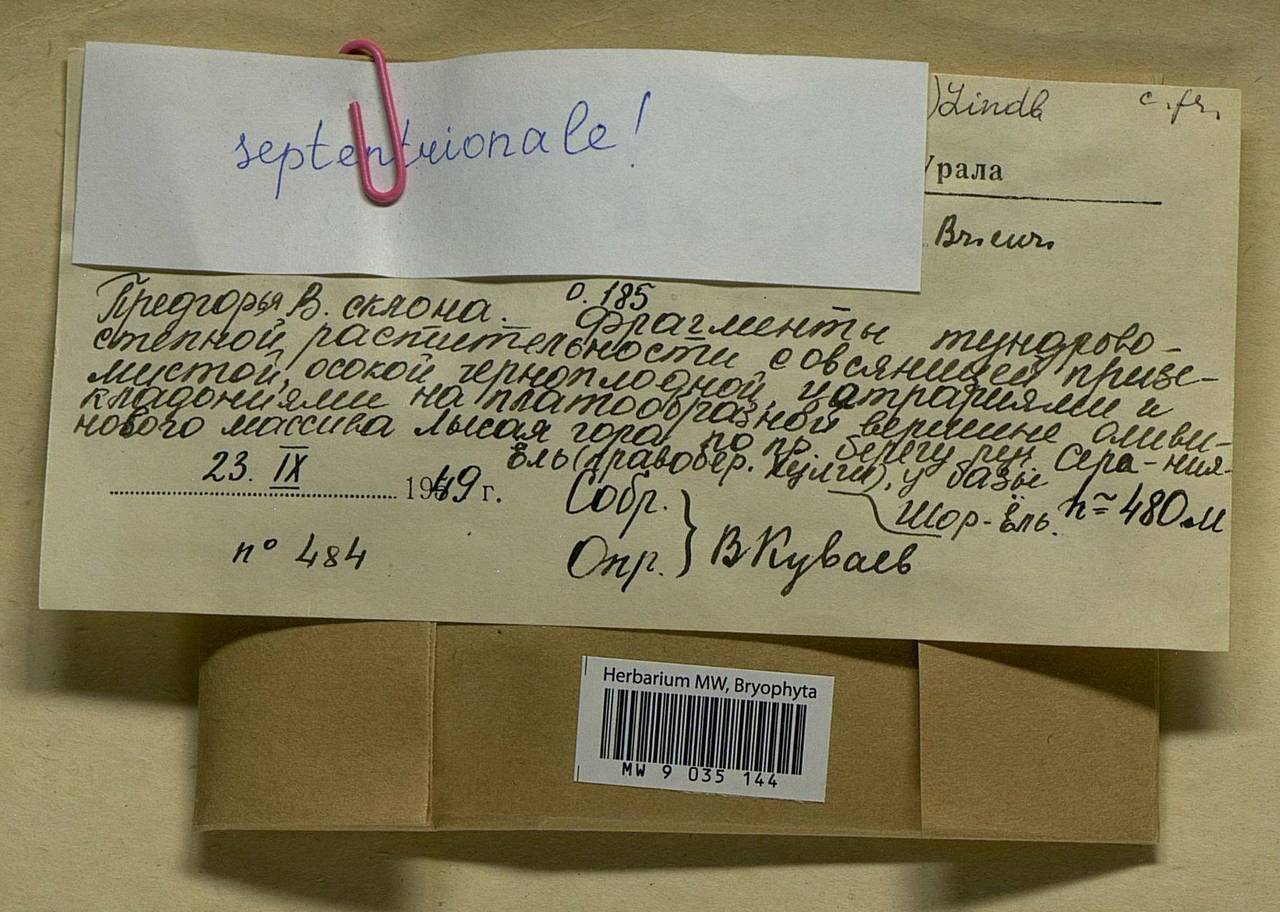 septentrionale!
)Lindb c. fr.
Урала
Br. eur.
Предгорья В. склона. о. 185 Фрагменты тундрово-
степной растительности с овсяницей призе-
мистой, осокой черноплодной, цетрариями и
кладониями на платообразной вершине оливи-
нового массива Лысая гора по пр. берегу реч. Сера-ния-
ёль (правобер. Хулги), у базы
Шор-ёль. h≈480 м
23. IX 1949 г.
Собр.
Опр. } В Куваев
n° 484
Herbarium MW, Bryophyta
MW 9 035 144